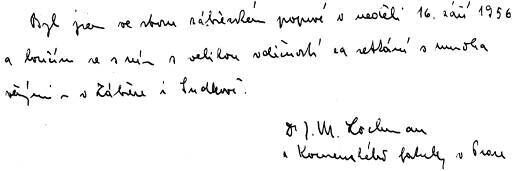 Byl jsem ve sboru zábřeském poprvé v neděli 16. září 1956
a loučím se s ním s velikou vděčností za setkání s mnoha
věrnými – v Zábřeze i Sudkově.
Dr J. M. Lochman
z Komenského fakulty v Praze